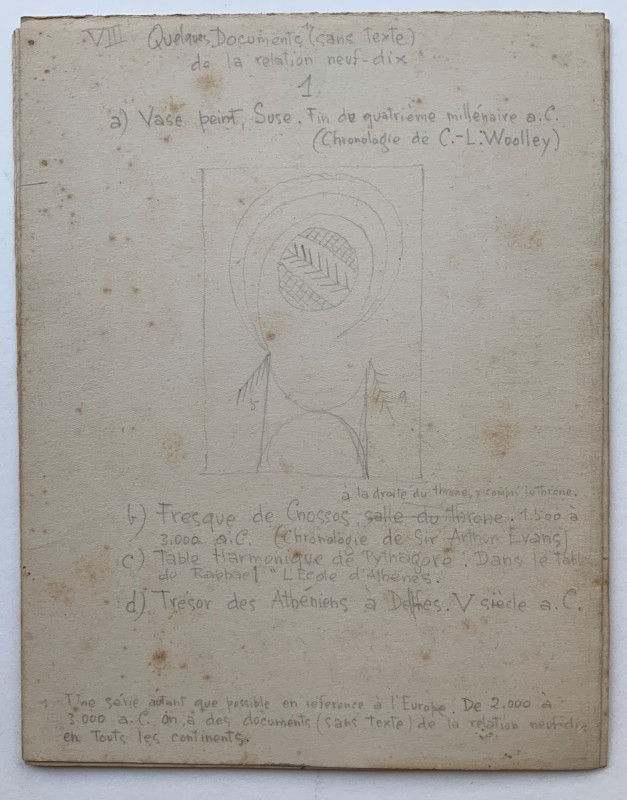 VIII Quelques Documents ¹⁾ (sans texte)
de la relation neuf-dix
1
a) Vase peint, Suse. Fin du quatrième millénaire a.C.
(Chronologie de C.-L. Woolley)
5 9
à la droite du throne, y compri le throne.
b) Fresque de Cnossos, salle du throne. 1.500 à
3.000 a.C. (Chronologie de Sir Arthur Evans)
c) Table Harmonique de Pythagore. Dans le
de Raphael "L'École d'Athènes.
d) Trésor des Athéniens à Delfes. V siècle a.C.
1 Une série autant que possible en réference à l'Europe. De 2.000 à
3.000 a.C. on à des documents (sans texte) de la relation neuf-dix
en touts les continents.